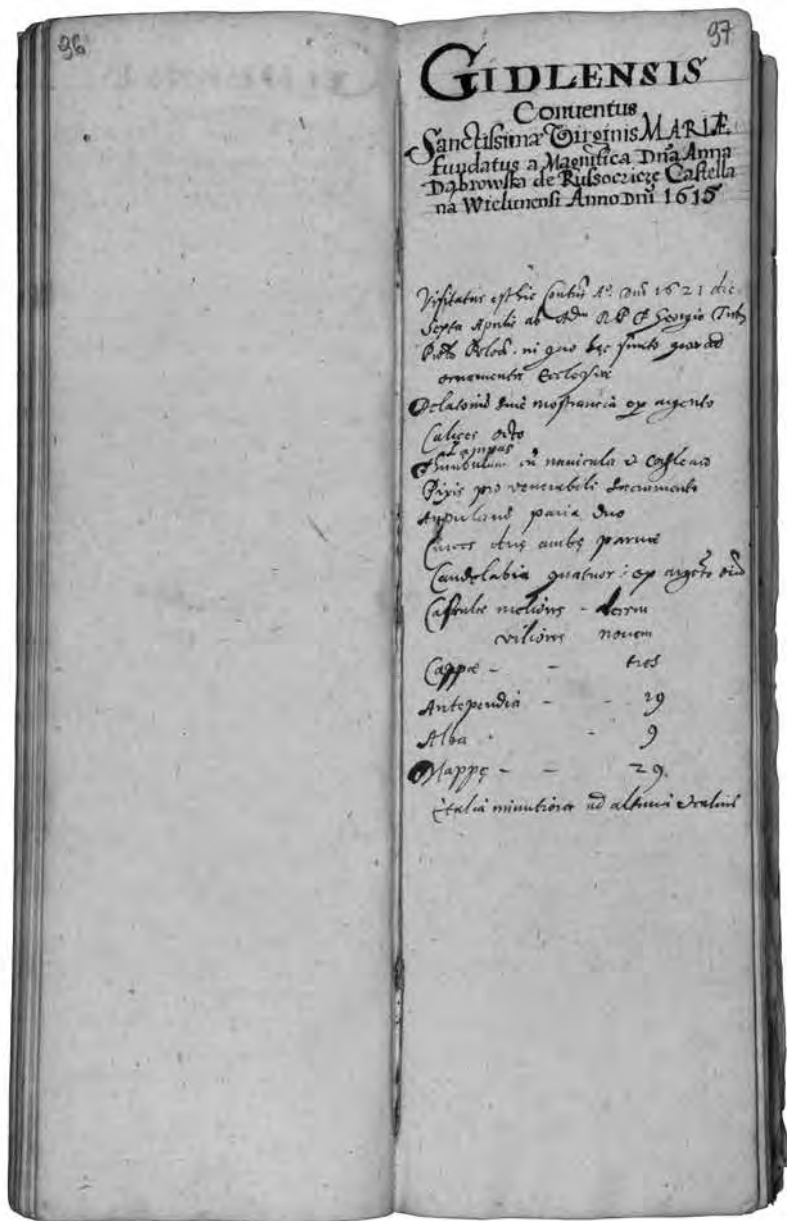 96
97
GIDLENSIS
Conuentus
Sanctissimæ Virginis MARIÆ
fundatus a Magnifica Dña Anna
Dąbrowska de Russoczicze Castella
na Wielunensi Anno Dni 1615
Visitatus est hic Contus Aº. Dni 1621 die
Septa Aprilis ab Adm R P F Georgio
hęc sunt quo ad
ornamenta Ecclesiæ
duæ ex argento
Calices octo
Lampas
Thuribulum cũ nauicula & cochleari
Pixis pro venerabili Sacramento
paria duo
Cruces duę ambę paruæ
Candelabra quatuor: ex argẽto
Casulæ meliores - decem
viliores nouem
Cappæ - - tres
Antependia - - 29
Alba - - 9
Mappę - - 29.
minutiora ad altaria